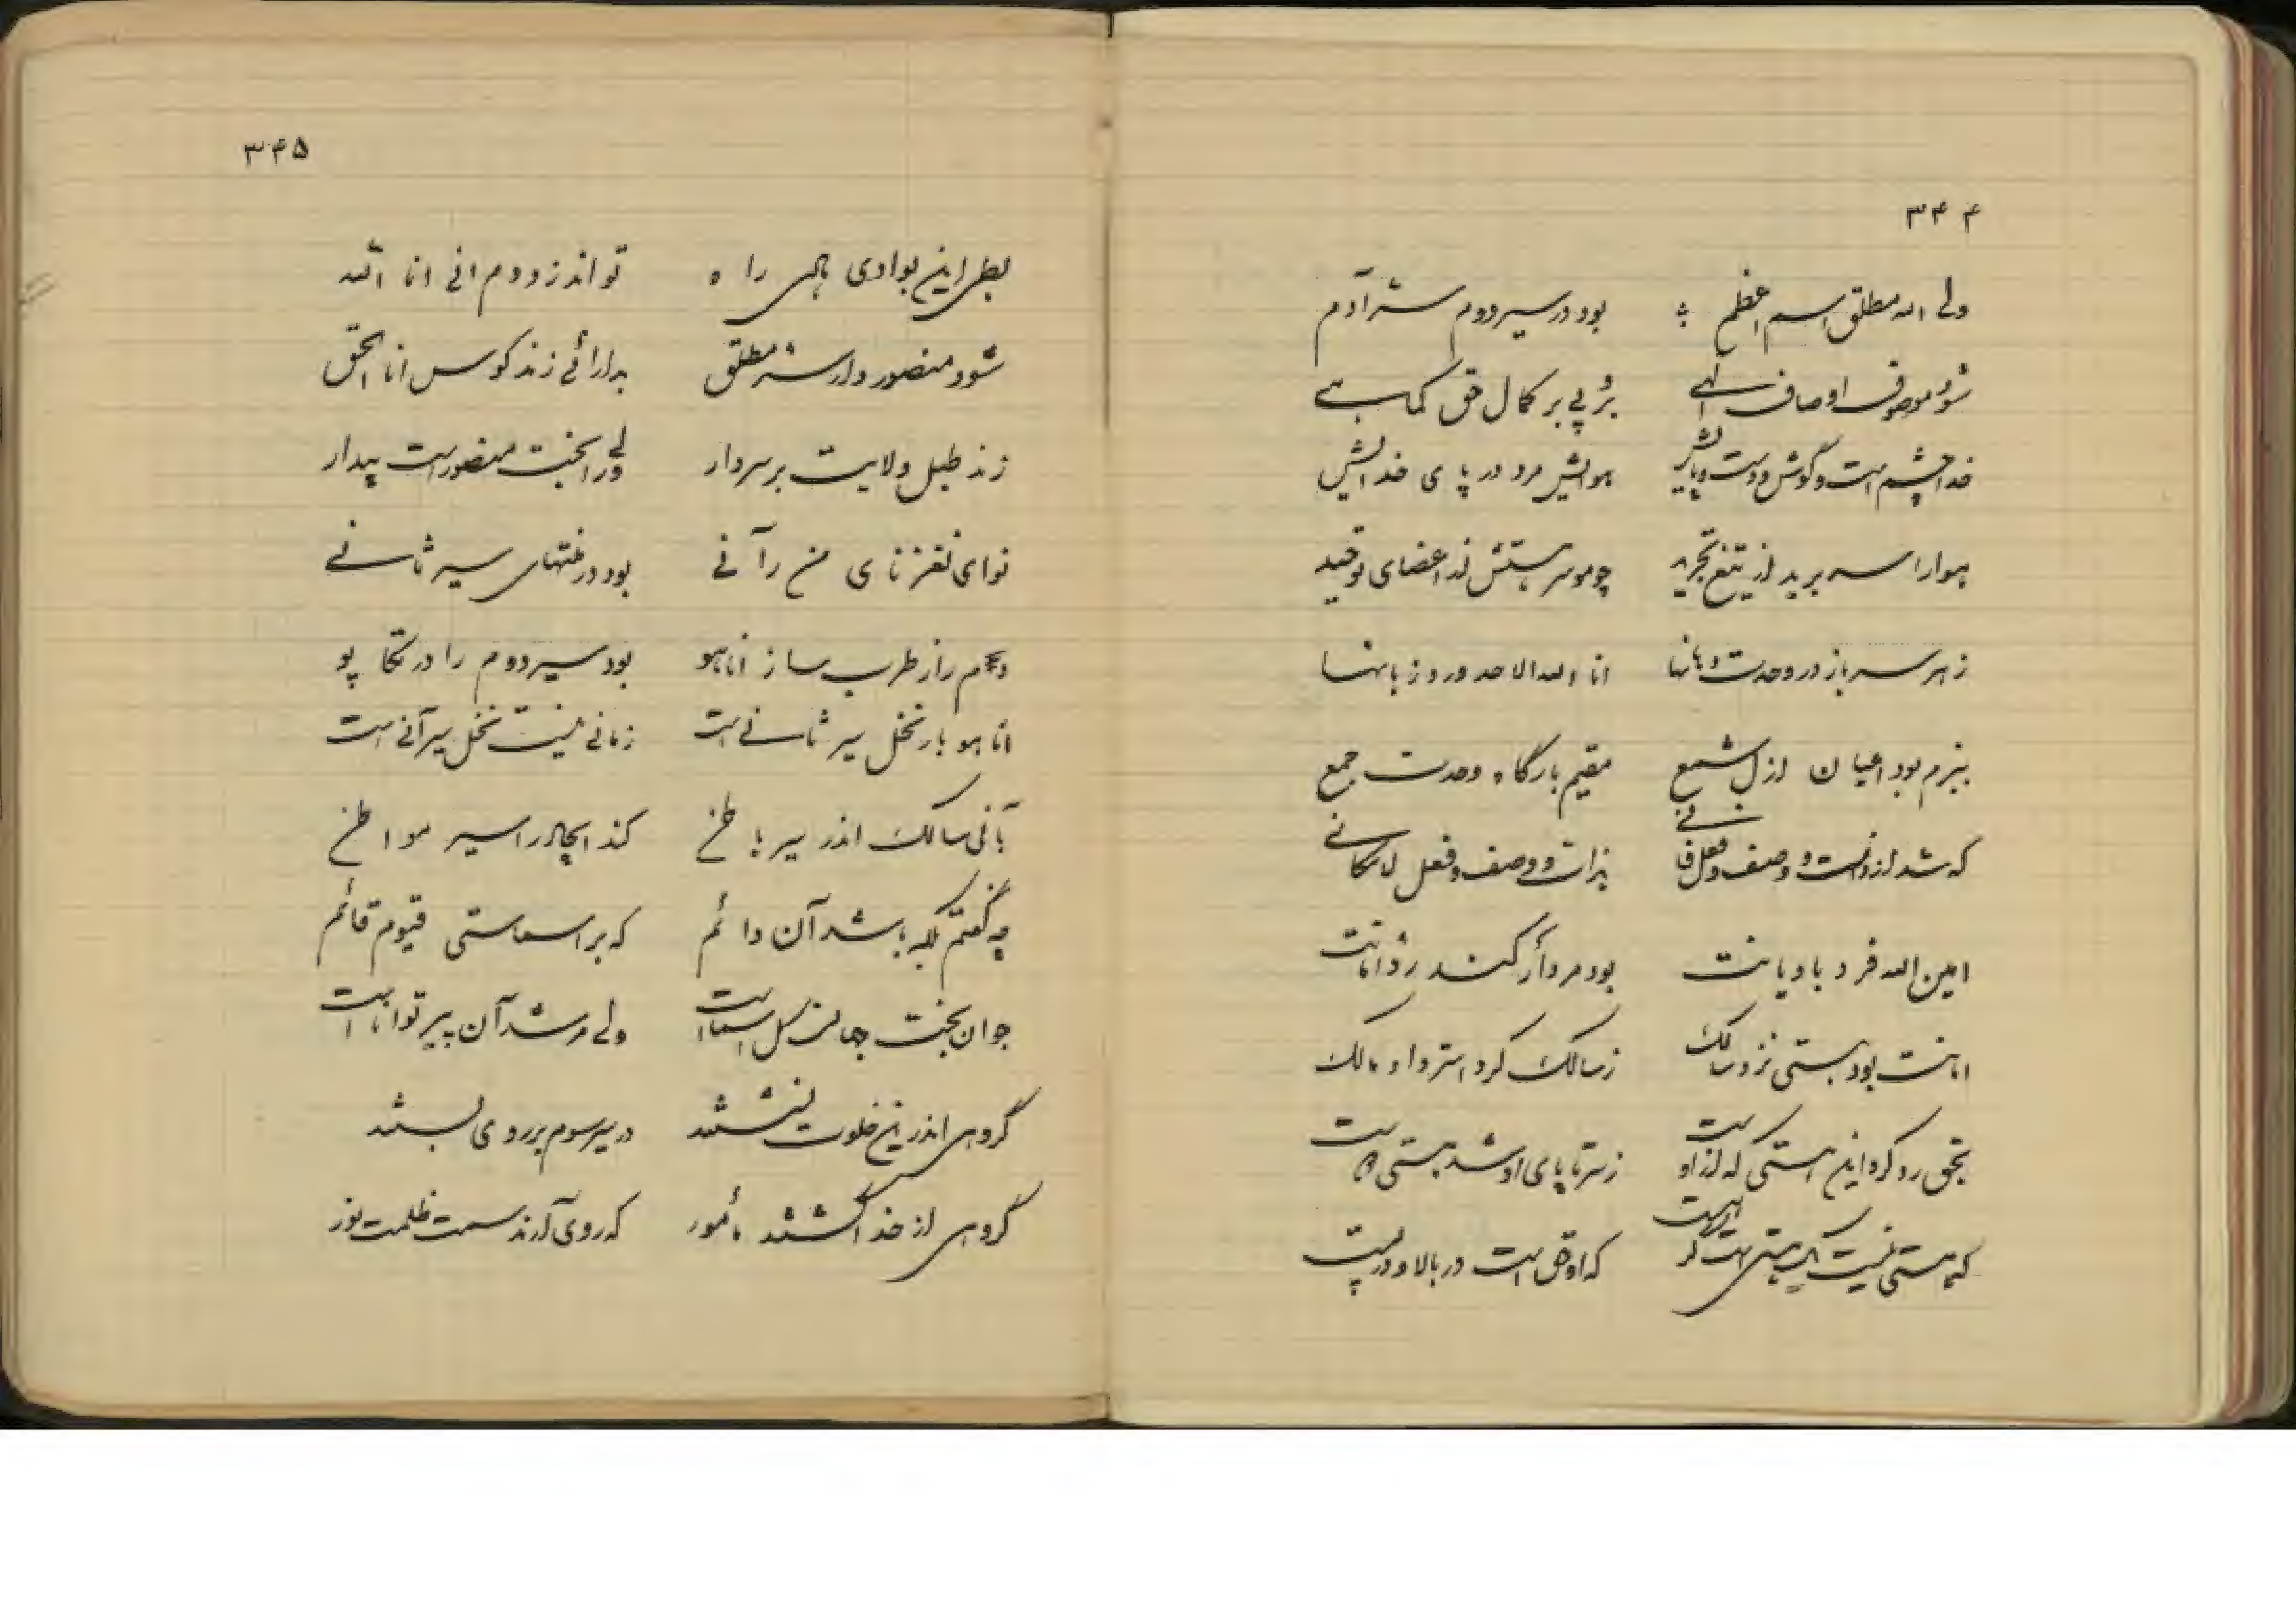 ۳۴۴
ولی الله مطلق اسم اعظم بود در سیر دوم سرّ آدم
شود موصوف اوصاف الهی برد پی بر کمال حق کماهی
خدا چشم است و گوش و دست و پایش هوایش مرد در پای خدایش
هوا را سر برید از تیغ تجرید چو مو سر بستش از اعضای توحید
ز هر سر باز در وحدت دهانها انا الله الاحد ورد زبانها
ببزم بود اعیان ازل شمع مقیم بارگاه وحدت جمع
که شد از ذات و وصف و فعل فانی بذات و وصف و فعل لامکانی
امین الله فرد با دیانت بود مرد ار کند رد امانت
امانت بود هستی نزد سالک ز سالک کرد استرداد مالک
بحق رد کرد این هستی که از اوست ز سر تا پای او شد هستی
که هستی نیست یک هستی است که او حق است در بالا و در پست
۳۴۵
بطی این بوادی راه تواند زد دم انی انا الله
شود منصور وار سرّ مطلق بدارائی زند کوس انا الحق
زند طبل ولایت بر سر دار ولی را بخت منصور است بیدار
نوای نغز نای من رآنی بود در منتهای سیر ثانی
دم راز طرب ساز اناهو بود سیر دوم را در تکاپو
اناهو بار نخل سیر ثانی است زمانی نیست نخل سیر آنی است
بآنی سالک اندر سیر باطن کند ایجاد را سیر مواطن
چه گفتم بلکه باشد آن دائم که بر اسماستی قیوم قائم
جوان بخت جهان کل اسماست ولی مرشد آن پیر تواناست
گروهی اندرین خلوت نشستند در سیر سوم بر روی بستند
گروهی از خدا گشتند مأمور که روی آرند سمت ظلمت از نور